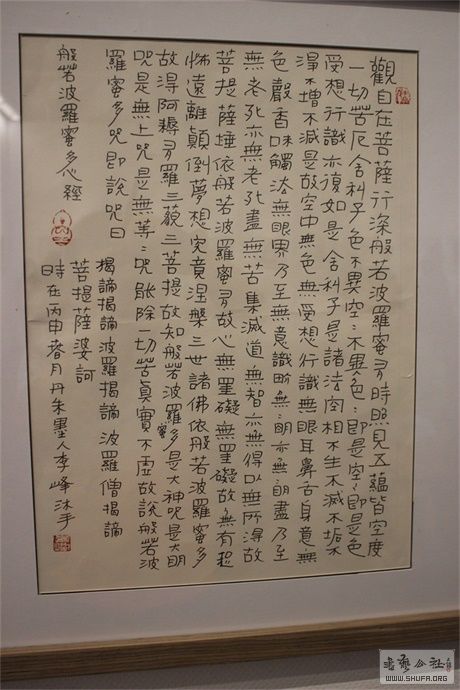 觀自在菩薩行深般若波羅蜜多時照見五蘊皆空度
一切苦厄舍利子色不異空:不異色:即是空:即是色
受想行識亦復如是舍利子是諸法空相不生不滅不垢不
淨不增不減是故空中無色無受想行識無眼耳鼻舌身意無
色聲香味觸法無眼界乃至無意識畍無:明亦無:明盡乃至
無老死亦無老死盡無苦集滅道無智亦無得以無所得故
菩提薩埵依般若波羅蜜多故心無罣礙無罣礙故無有恐
怖遠離顛倒夢想究竟涅槃三世諸佛依般若波羅蜜多
故得阿耨多羅三藐三菩提故知般若波羅蜜多是大神咒是大明
咒是無上咒是無等:咒能除一切苦真實不虛故說般若波
羅蜜多咒即說咒曰
揭諦揭諦波羅揭諦 波羅僧揭諦
菩提薩婆訶
般若波羅蜜多心經
時在丙申春月丹朱墨人李峰沐手
WWW.SHUFA.ORG